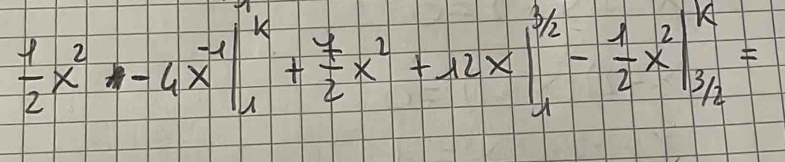 1/2 x² - 4x⁻¹ |₁ᴷ + 7/2 x² + 12x |₁^3/2 - 1/2 x² |_3/2^K =